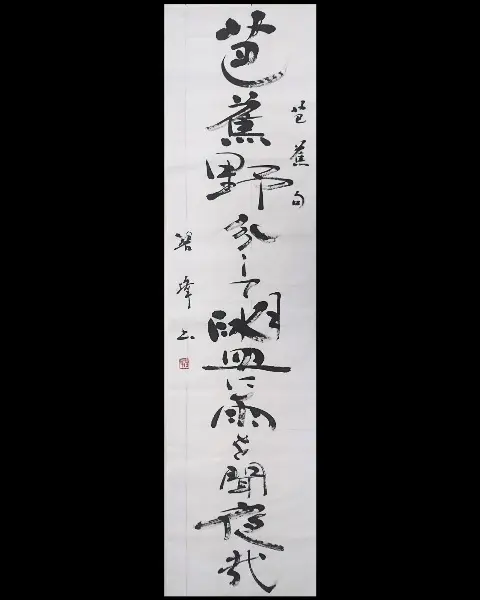 芭蕉句
芭蕉野分して盥に雨を聞夜哉
碧峰